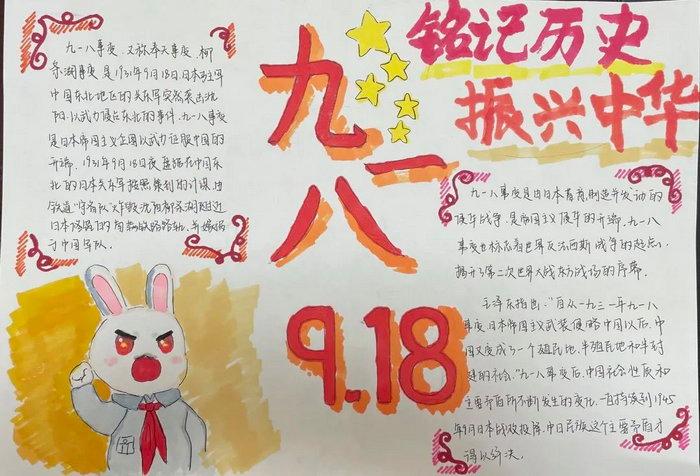 铭记历史
振兴中华
九一八
9.18
九一八事变，又称奉天事变、柳
条湖事变是1931年9月18日日本驻军
中国东北地区的关东军突然袭击沈
阳，以武力侵占东北的事件。九一八事变
是日本帝国主义企图以武力征服中国的
开端，1931年9月18日夜，盘踞在中国东
北的日本关东军按照策划的计谋，由
铁道"守备队"炸毁沈阳柳条湖附近
日本修筑的南满铁路路轨，并嫁祸
于中国军队。
九一八事变是由日本蓄意制造并发动的
侵华战争，是帝国主义侵华的开端。九一八
事变也标志着世界反法西斯战争的起点，
揭开了第二次世界大战东方战场的序幕。
毛泽东指出："自从一九三一年九一八
事变日本帝国主义武装侵略中国以后，中
国又变成了一个殖民地、半殖民地和半封
建的社会。"九一八事变后，中国社会性质和
主要矛盾所不断发生的变化，一直持续到1945
年9月日本战败投降，中日民族这个主要矛盾才
得以解决。